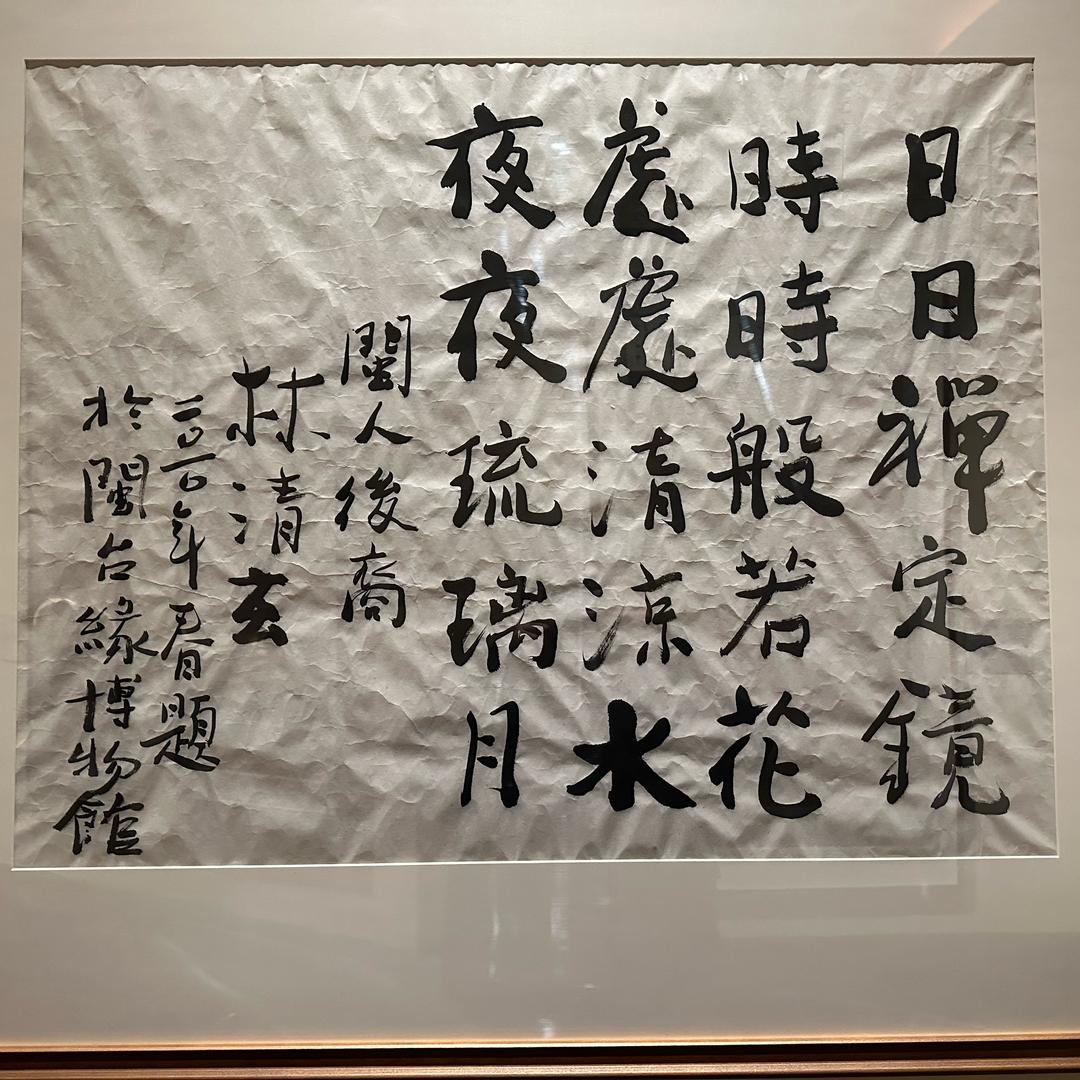 日日禪定鏡
時時般若花
處處清涼水
夜夜琉璃月
閩人後裔
林清玄
二〇一〇年春題
於閩台緣博物館